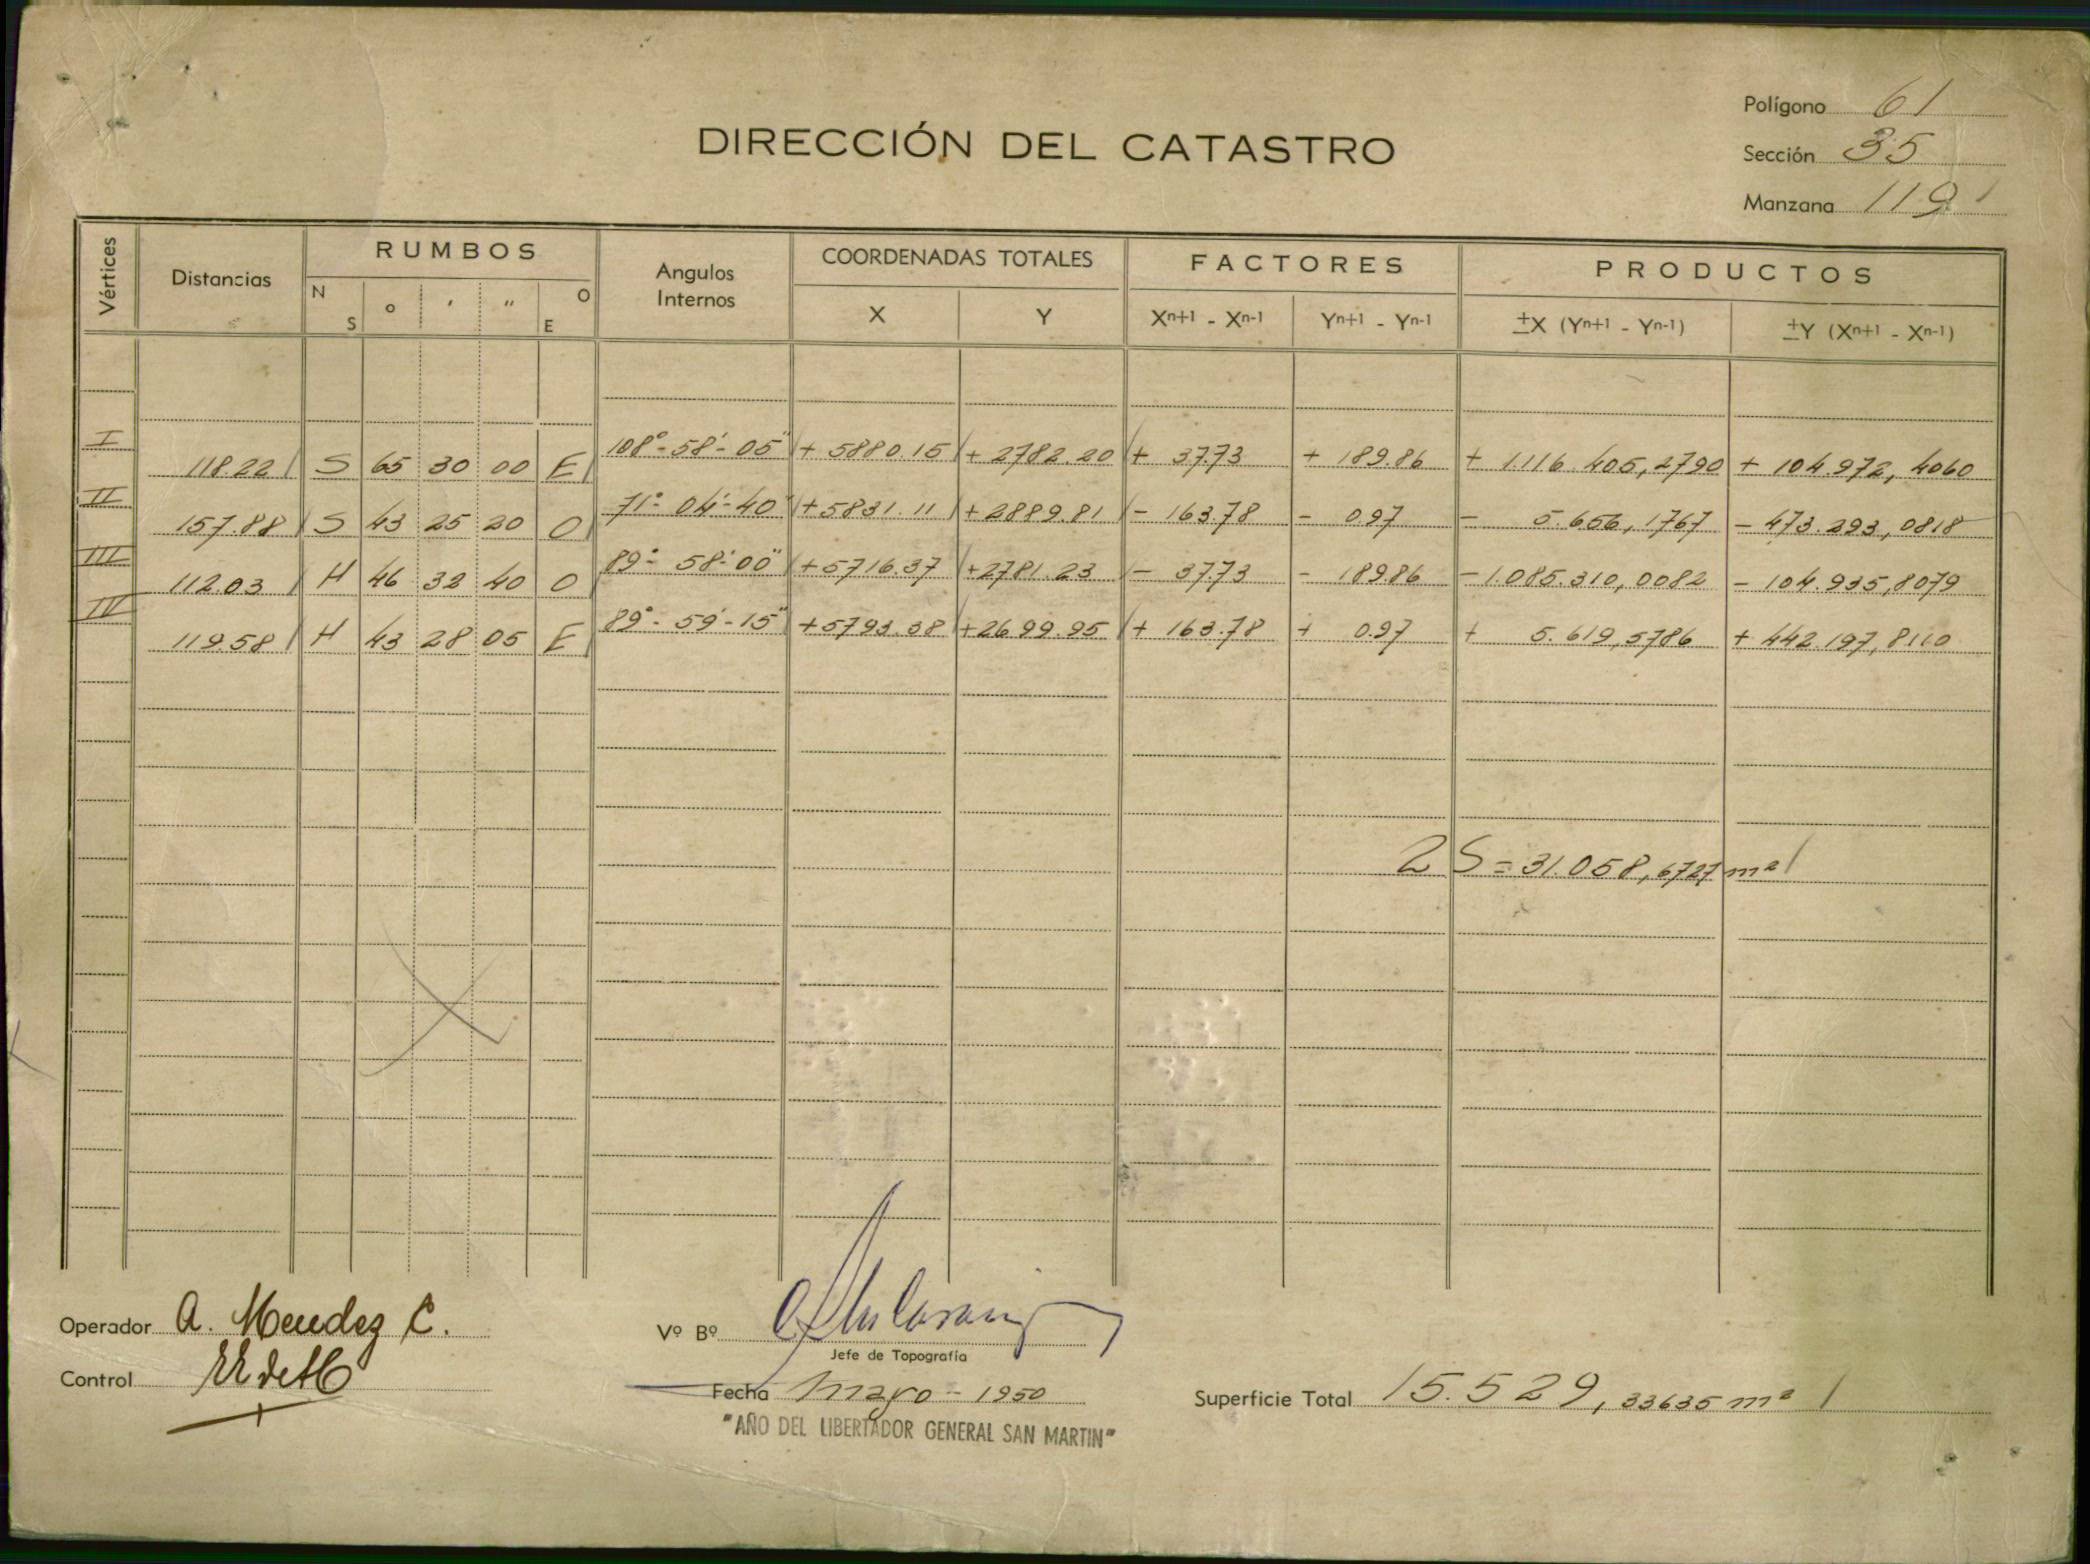 Polígono 61
DIRECCIÓN DEL CATASTRO
Sección 35
Manzana 119
Vértices Distancias RUMBOS Angulos Internos COORDENADAS TOTALES FACTORES PRODUCTOS
N S ° ' " E O X Y Xn+1 - Xn-1 Yn+1 - Yn-1 ±X (Yn+1 - Yn-1) ±Y (Xn+1 - Xn-1)
I 108°-58'-05" + 5880.15 + 2782.20 + 37.73 + 189.86 + 1.116.405,2790 + 104.972,4060
118.22 S 65 30 00 E
II 71°-04'-40" +5831.11 +2889.81 - 163.78 - 0.97 - 5.656,1767 - 473.293,0818
157.88 S 43 25 20 O
III 89°-58'-00" +5716.37 +2781.23 - 37.73 - 189.86 -1.085.310,0082 - 104.935,8079
112.03 N 46 32 40 O
IV 89°-59'-15" +5793.38 +2699.95 + 163.78 + 0.97 + 5.619,5786 + 442.197,8110
119.58 N 43 28 05 E
2 S = 31.058,6727 m²
Operador A. Mendez C.
Vº Bº
Jefe de Topografía
Control
Fecha mayo - 1950
Superficie Total 15.529,33635 m²
"AÑO DEL LIBERTADOR GENERAL SAN MARTIN"